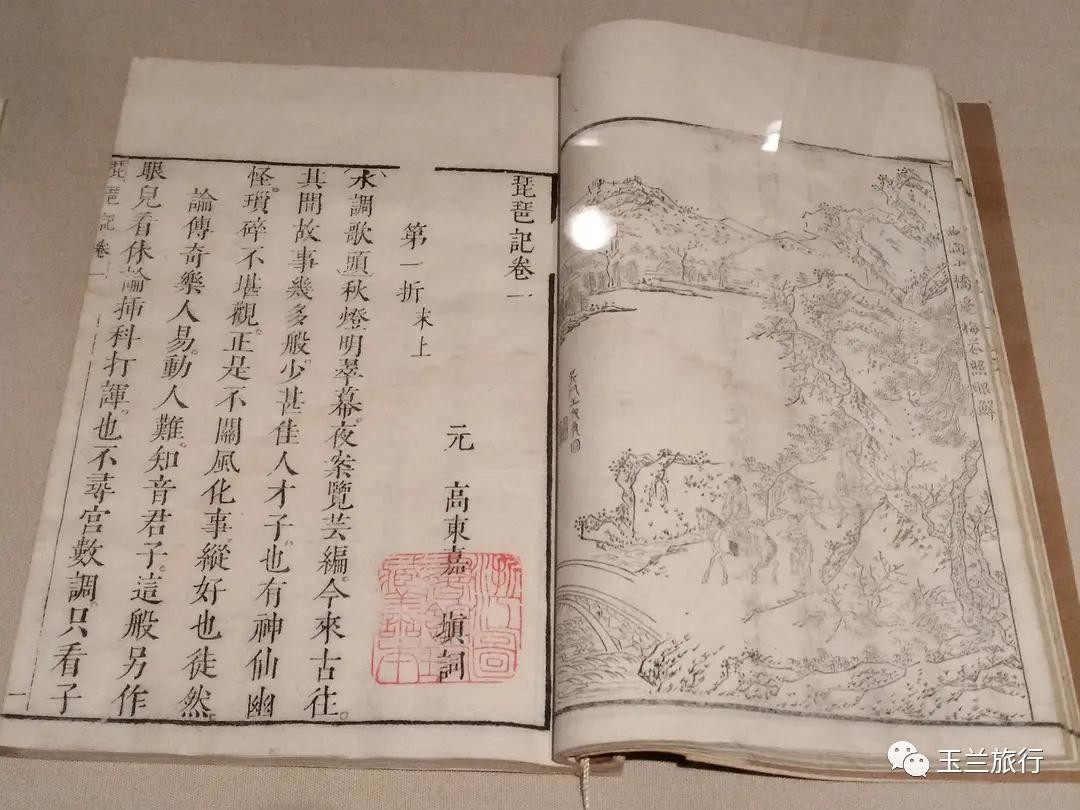 小橋邊梅花照眼
琵琶記卷一
元 高東嘉 塡詞
第一折 末上
水調歌頭秋燈明翠幕。夜案覽芸編。今來古往。
其間故事幾多般。少甚佳人才子。也有神仙幽
怪。瑣碎不堪觀。正是不關風化事。縱好也徒然。
論傳奇。樂人易。動人難。知音君子。這般另作
眼兒看。休論揷科打諢。也不尋宮數調。只看子
琵琶記卷一 一
玉兰旅行